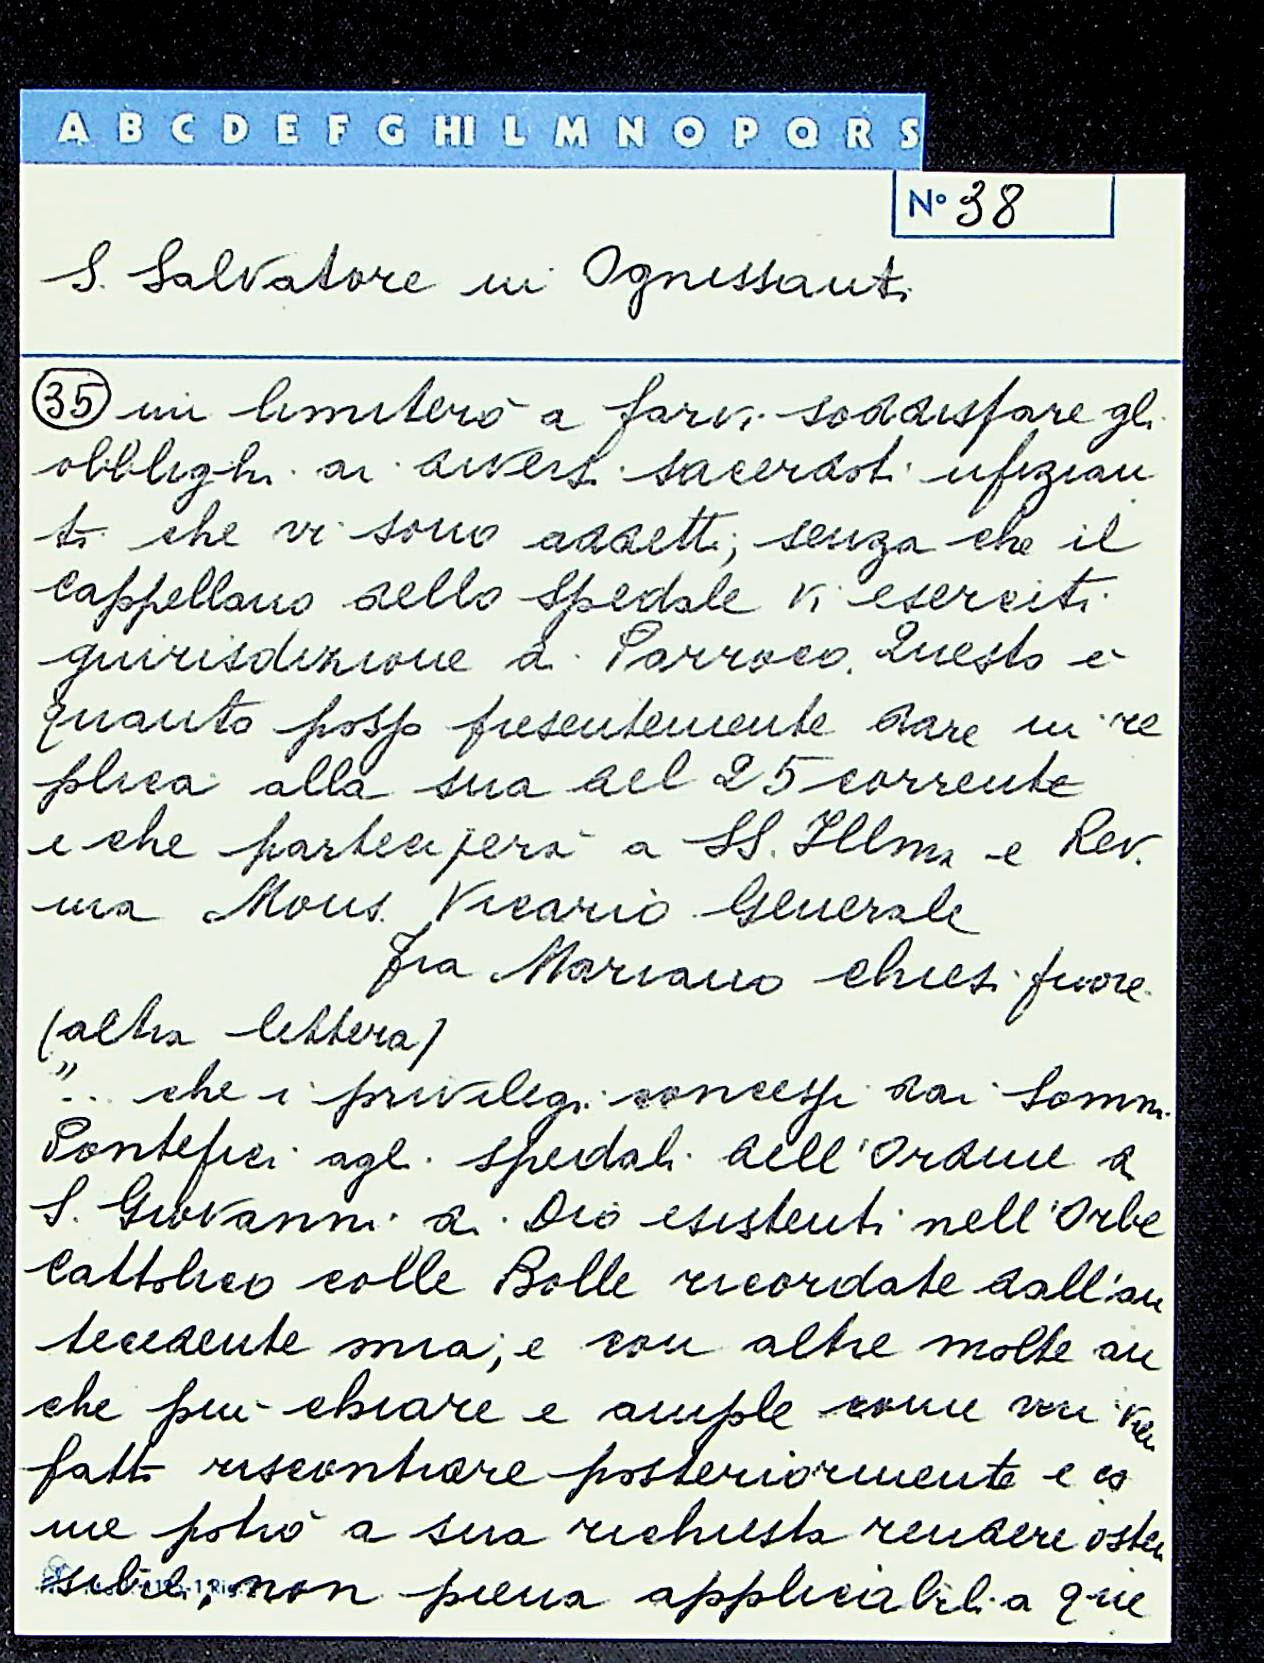 A B C D E F G HI L M N O P Q R S
N° 38
S. Salvatore in Ognissanti
35 mi limiterò a farvi soddisfare gli
obblighi ai diversi sacerdoti ufizian
ti che vi sono addetti, senza che il
cappellano dello Spedale vi eserciti
giurisdizione di Parroco. Questo è
quanto posso presentemente dare in re
plica alla sua del 25 corrente
e che parteciperà a SS. Illma e Rev.
ma Mons. Vicario Generale
Fra Mariano Chiesi priore
(altra lettera)
".. che i privilegi concessi dai Sommi
Pontefici agli spedali dell'Ordine di
S. Giovanni di Dio esistenti nell'Orbe
Cattolico colle Bolle ricordate dall'an
tecedente mia, e con altre molte an
che più chiare e ample come mi vien
fatti riscontrare posteriormente e co
me potrò a sua richiesta rendere osten
sibili, non siena applicabili a que